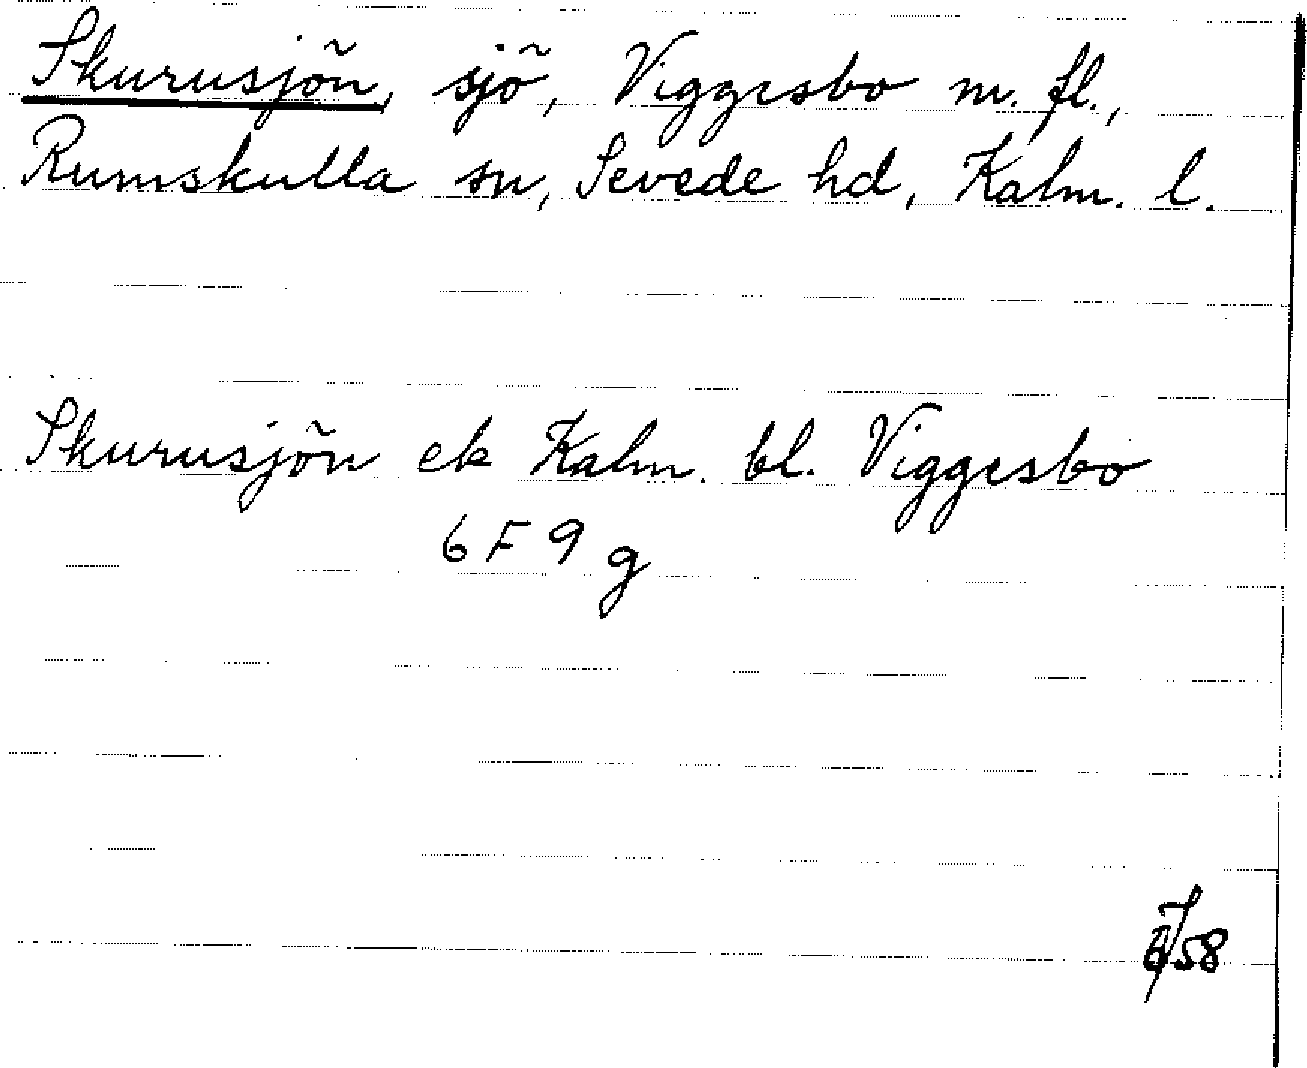 Skurusjön, sjö, Viggesbo m. fl.,
Rumskulla sn, Sevede hd, Kalm. l.
Skurusjön ek Kalm. bl. Viggesbo
6 F 9 g
58